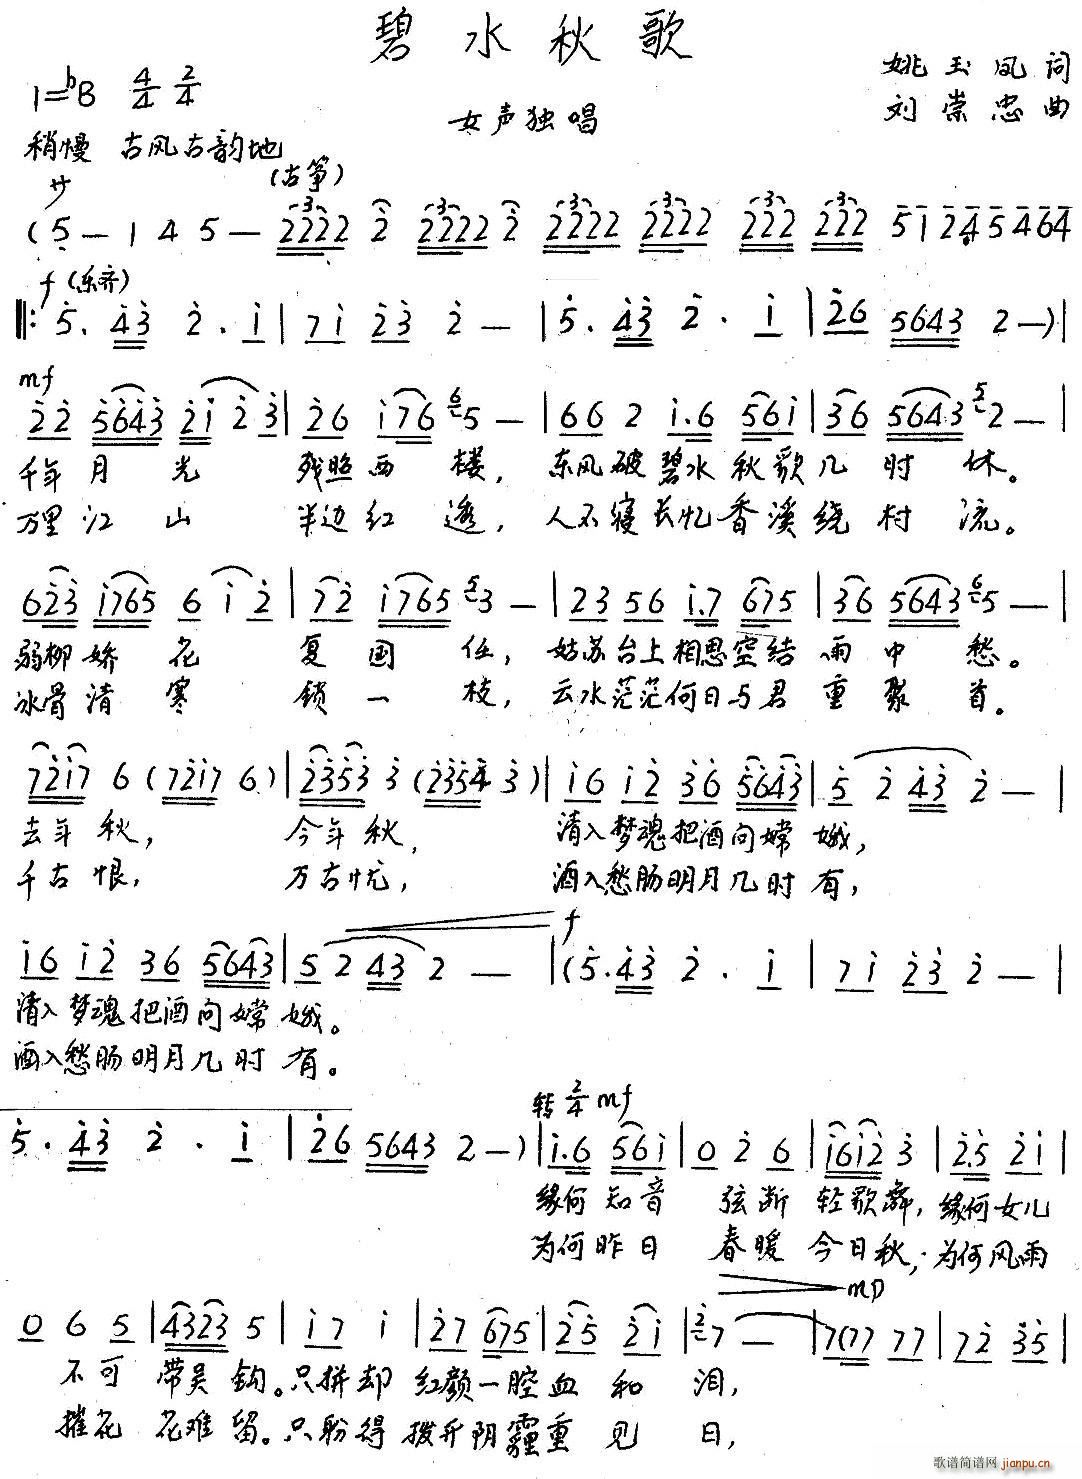 碧水秋歌
姚玉凤 词
1=♭B 4/4 2/4
女声独唱
刘崇忠 曲
稍慢 古风古韵地
(古筝)
サ
(5 — 1 4 5 — 2222 2 2222 2 2222 2222 222 222 5 1 2 4 5 4 6 4
f (乐齐)
‖: 5. 43 2. 1 | 71 23 2 — | 5. 43 2. 1 | 26 5643 2 —) |
mf
22 5643 21 2 3 | 26 176 5 — | 66 2 1.6 561 | 36 5643 2 — |
千年月光 残照西楼, 东风破碧水秋歌几时休。
万里江山 半边红透, 人不寝长忆香溪绕村流。
623 1765 6 1 2 | 72 1765 3 — | 23 56 1.7 675 | 36 5643 5 — |
弱柳娇花 复国任, 姑苏台上相思空结雨中愁。
冰骨清寒 锁一枝, 云水茫茫何日与君重聚首。
7217 6 (7217 6) | 2353 3 (2354 3) | 16 12 36 5643 | 5 2 43 2 — |
去年秋, 今年秋, 清入梦魂把酒问嫦娥,
千古恨, 万古忧, 酒入愁肠明月几时有,
f
16 12 36 5643 | 5 2 43 2 — | (5. 43 2. 1 | 71 23 2 — |
清入梦魂把酒问嫦娥。
酒入愁肠明月几时有。
转2/4 mf
5. 43 2. 1 | 26 5643 2 —) | 1.6 561 | 0 2 6 | 1612 3 | 2.5 21 |
缘何知音 弦断轻歌舞, 缘何女儿
为何昨日 春暖今日秋, 为何风雨
mp
0 6 5 | 4323 5 | 17 1 | 27 675 | 25 21 | 7 — | 7(77 77 | 72 35 |
不可带吴钩。只拼却红颜一腔血和泪,
摧花花难留。只盼得拨开阴霾重见日,
歌谱简谱网 jianpu.cn